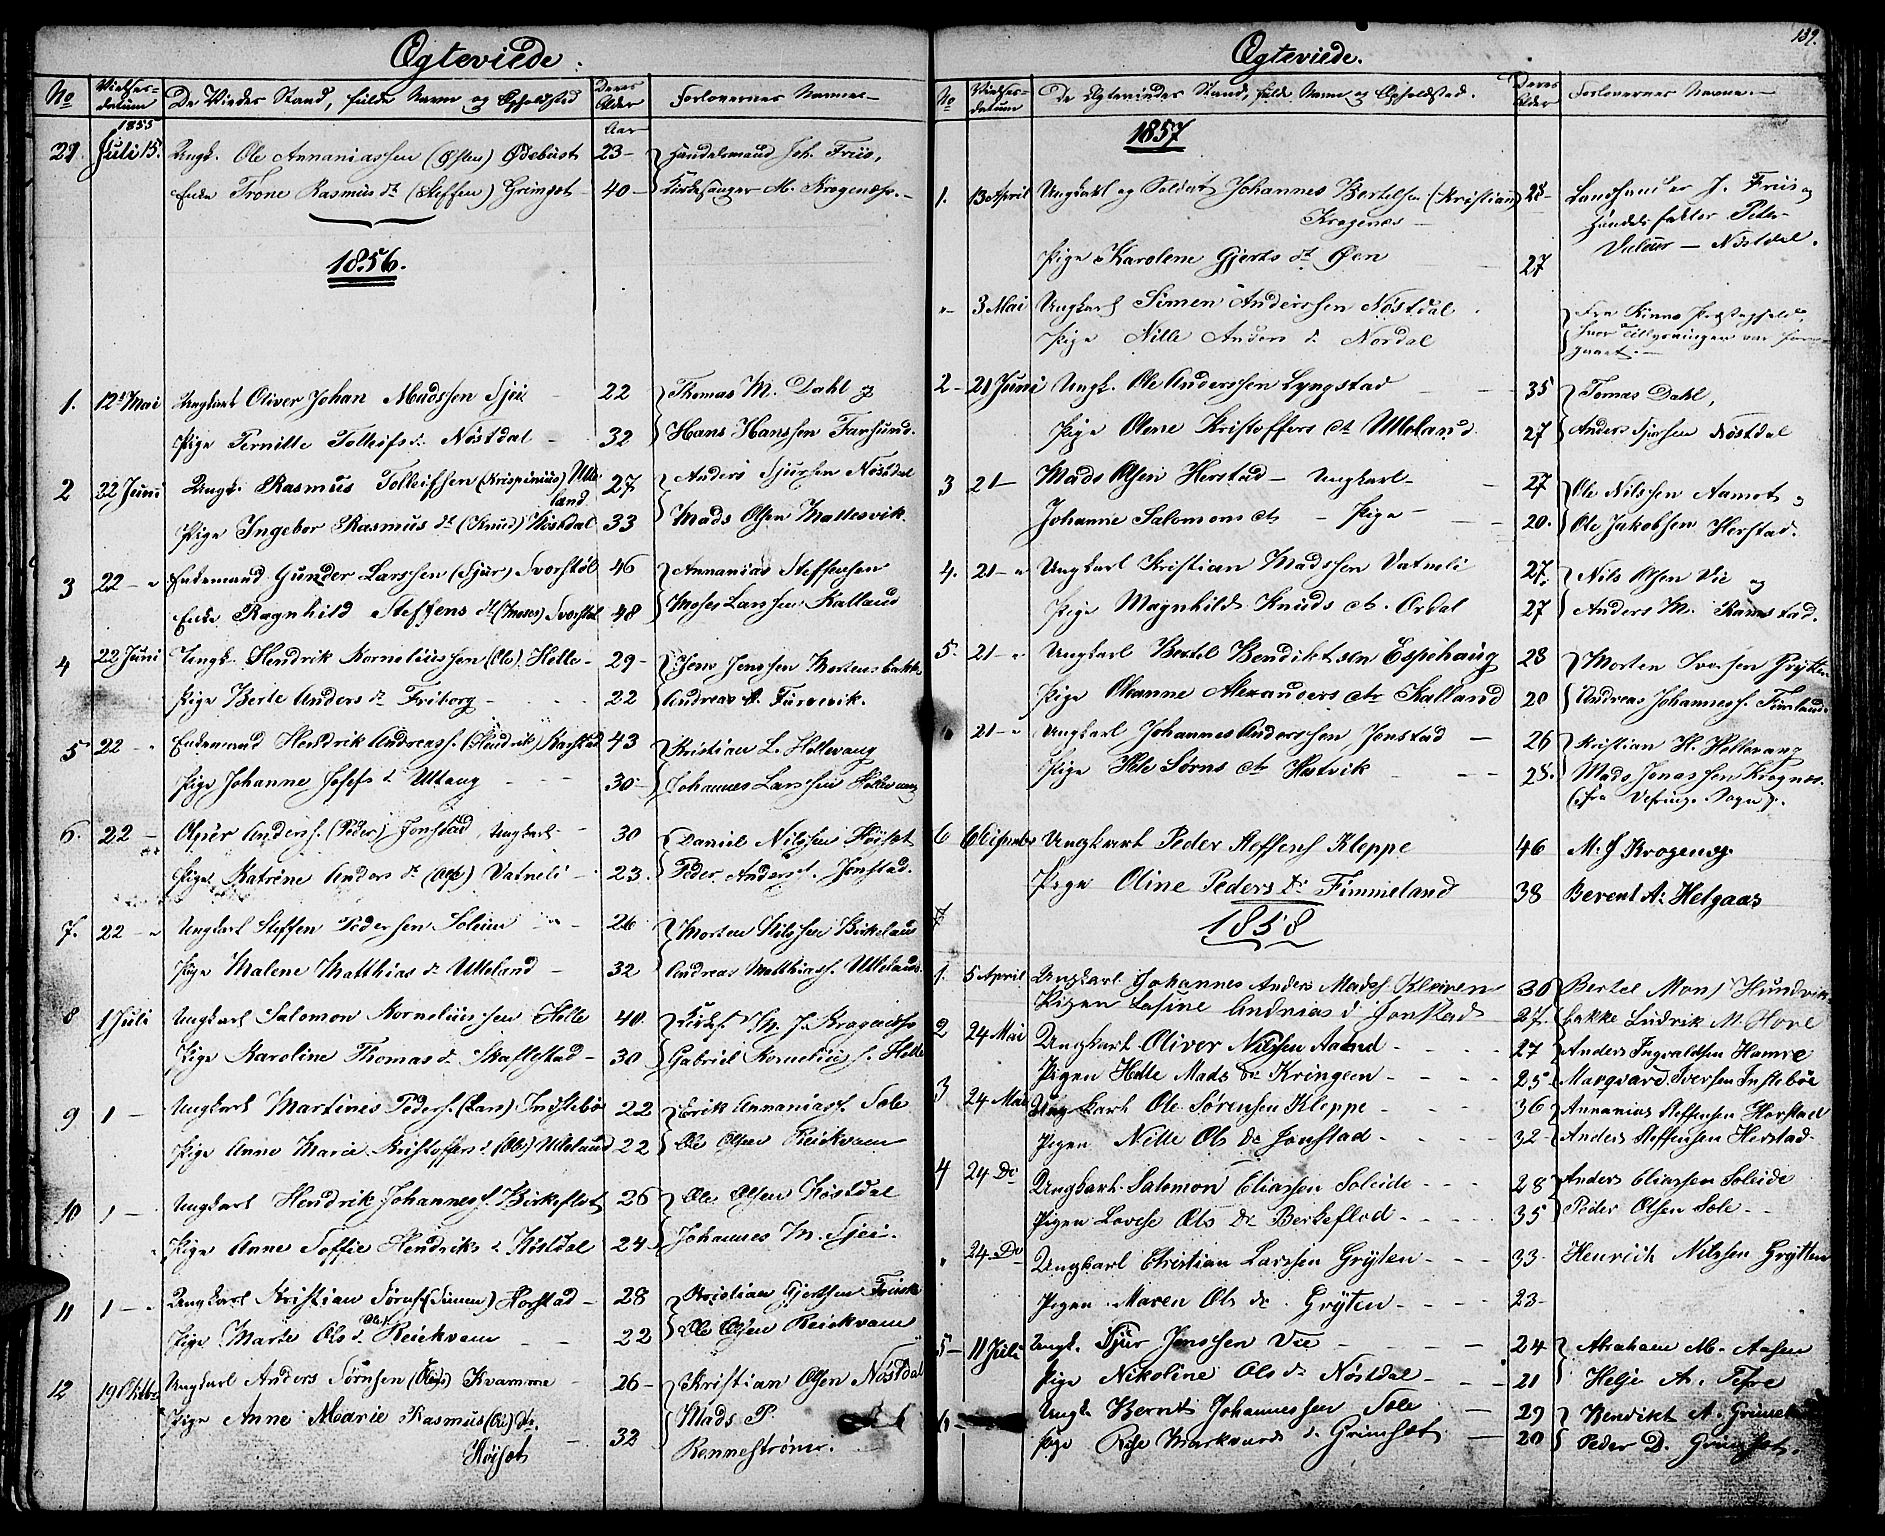 Ægteviede.
No
Vielses-datum
De Viedes Stand, fulde Navn og Opholdsted
Deres Alder
Forlovernes Navne
1855
Aar
21. Juli 15. Ungk. Ole Annaniassen (Østen) Ødebust 23 Handelsmand Joh. Friis,
Enke Trone Rasmus dr (Steffen) Grimset 40 Kirkesanger M. Kragenæs
1856.
1. 12t Mai Ungkarl Oliver Johan Madssen Sjei 22 Thomas M. Dahl og
Pige Pernille Tolleifs dr Nøstdal 32 Hans Hanssen Farsund.
2 22 Juni Ungk. Rasmus Tolleifsen (Krispinius) Ulle- 27 Anders Sjursen Nøstdal
land
Pige Ingebor Rasmus dr (Knud) Nøstdal 33 Mads Olsen Mallesvik.
3 22 - " Enkemand Gunder Larssen (Sjur) Svorstøl 46 Annanias Steffensen
Enke Ragnhild Steffens dr (Moses) Svorstøl 48 Moses Larssen Kalland
4 22 Juni Ungk. Hendrik Korneliussen (Ole) Helle 29 Jens Jenssen Mortensbakke
Pige Berte Anders dr Friborg 22 Andreas A. Furevik.
5 22 - " Enkemand Hendrik Andreass. (Hendrik) 43 Kristian L. Hellevang
Pige Johanne Josefs d Uttaug 30 Johannes Larssen Hellevang
6. 22 - Anderss. (Peder) Jonstad, Ungkarl 30 Daniel Nilssen Høiset
Pige Katrine Anders dr (Ole) Vatneli 23. Peder Anderss. Jonstad.
7. 22 - " Ungkarl Steffen Pedersen Soleim 26 Morten Nilssen Birkeland
Pige Malene Matthias dr Ulleland 32 Andreas Matthiass. Ulleland
8 1 Juli Ungkarl Salomon Korneliussen Helle 40. Kirkes. M. J. Kragenæs
Pige Karoline Thomas dr Skaflestad 30 Gabriel Kornelius s. Helle
9 1 - Ungkarl Martines Peders. (Lars) Instebø 22 Erik Annaniass. Sole
Pige Anne Marie Kristoffers d. (Ole) Ulleland 22 Ole Olsen Reickvam
10 1 - Ungkarl Hendrik Johanness. Birkeflot 26 Ole Olsen Nøstdal
Pige Anne Soffie Hendriks d Nøstdal 24 Johannes M. Sjei.
11 1 - " Ungkarl Kristian Sørens. (Simen) Horstad 28 Kristian Gjertsen
Pige Marte Ols d. Reickvam 22 Ole Olsen Reickvam
12 19 Oktbr Ungkarl Anders Sørnsen Kvamme 26 Kristian Olsen Nøstdal
Pige Anne Marie Rasmus dr. Mads P.
Høiset 32 Rennestrøner.
139.
Ægteviede.
No
Vielses-datum
De Ægteviedes Stand, fulde Navn og Opholdsted.
Deres Alder
Forlovernes Navne.
1857
1. 13 April Ungkarl og Soldat Johannes Bertelsen (Kristian) 28 Landhandler J. Friis og
Kragenæs Handelsfaktor Peter
Pige Karolene Gjerts dr Øen 27 Valeur - Nøstdal.
" 3 Mai Ungkarl Simen Anderssen Nøstdal Fra Kinns Præstegjeld,
Pige Nille Anders d. Nordal hvor Tillysningen var
2 - 21 Juni Ungk. Ole Anderssen Lyngstad 35 Tomas Dahl,
Pige Olene Kristoffers dr Ulleland 27 Anders Sjursen Nøstdal
3 21 - Mads Olsen Herstad - Ungkarl 27 Ole Nilssen Aamot og
Johanne Salomons dr - Pige 20. Ole Jakobsen Herstad.
4. 21 - " Ungkarl Kristian Madssen Vatneli 27. Nils Olsen Vie og
Pige Magnhild Knuds dr. Ordal 27 Anders M. Ramstad.
5. 21 - " Ungkarl Bertel Bendiktsen Espehaug 28 Morten Iversen Grytten
Pige Oleanne Alexanders dr Kalland 20 Andreas Johanness. Førland.
21 - " Ungkarl Johannes Anderssen Jonstad 26 Kristian H. Hellevang
Pige Helle Sørns dr Hatvik 28. Mads Jonassen Krognes.
(fra Vefrings Sogn).
6 6 Ungkarl Peder Steffens Kleppe 46 M. J Kragenæs
Pige Oline Peders dr Fimmeland 38 Berent A. Helgaas
1858
1. 5 April Ungkarl Johannes Anders Mads Kleiven 30 Bertel Mons Hundvik
Pigen Lasine Andrias d Jonstad 27. Ludvik M. Hove
2 24 Mai Ungkarl Oliver Nilssen Aamd 27 Anders Ingvaldsen Hamre
Pigen Helle Mads dr Kringlen 25 Marqvard Iversen Instebøe
3 24 Mai Ungkarl Ole Sørensen Kleppe 36 Annanias Steffensen Horstad
Pigen Nille Ols dr Jonstad 32 Anders Steffensen Herstad
4 24 Do Ungkarl Salomon Eliassen Soleide 28 Anders Eliassen Soleide
Pigen Lovise Ols dr Berkeflod 35 Peder Olsen Sole
" 24 Do Ungkarl Christian Larssen Gryten 33 Henrich Nilssen Grytten
Pigen Maren Ols dr Gryten 23
5 11 Juli Ungk. Sjur Jenssen Vie 24 Abraham M. Aasen
Pige Nikoline Ols dr Nøstdal 21 Helje A. Tefre
6 Ungk. Bernt Johannessen Sole 29 Bendikt A. Grimset
Pige Markvards d. Grimset 20 Peder D. Grimset.